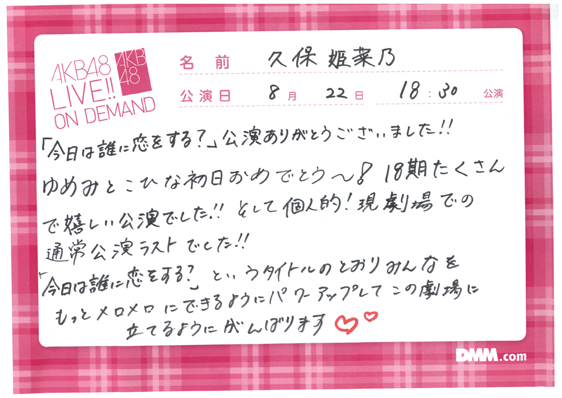 AKB48
LIVE!!
ON DEMAND
AKB
48
名前 久保 姫菜乃
公演日 8月 22日 18:30 公演
「今日は誰に恋をする?」公演ありがとうございました!!
ゆめみとこひな初日おめでとう〜8 18期たくさん
で嬉しい公演でした!! そして個人的!現劇場での
通常公演ラストでした!!
「今日は誰に恋をする?」というタイトルのとおりみんなを
もっとメロメロにできるようにパワーアップしてこの劇場に
立てるようにがんばります
DMM.com